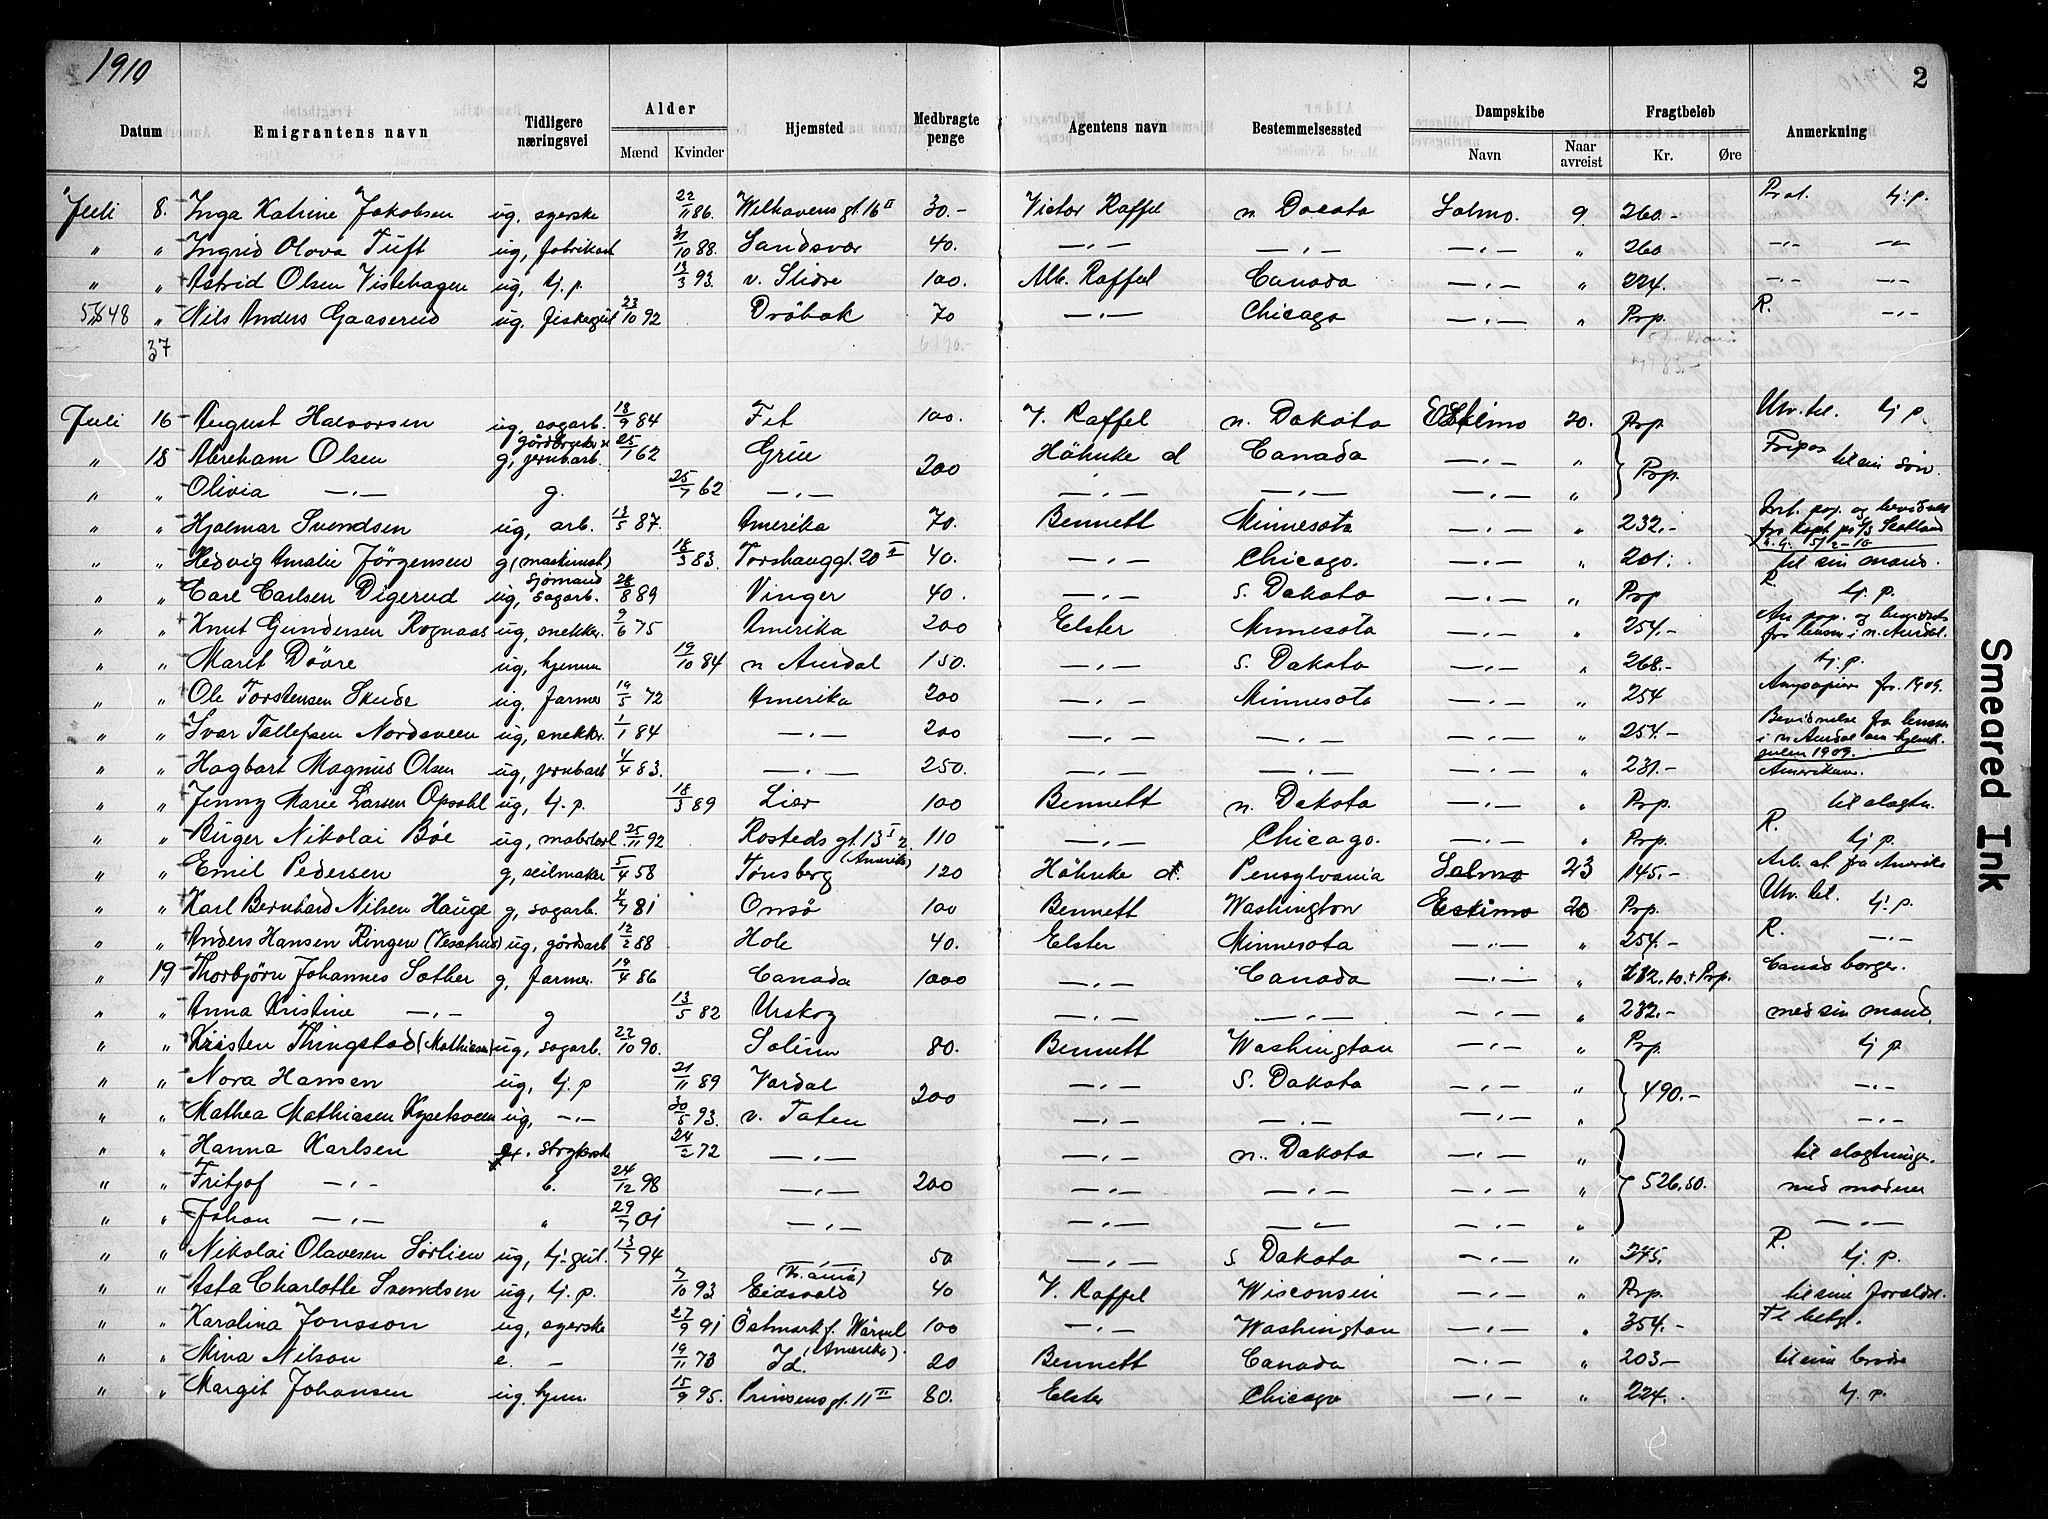 1910
2
Datum Emigrantens navn Tidligere næringsvei Alder Mænd Kvinder Hjemsted Medbragte penge Agentens navn Bestemmelsessted Dampskibe Navn Naar avreist Fragtbeløb Kr. Øre Anmerkning
Juli 8. Inga Katrine Jakobsen ug, syerske 22/11 86. Welhavens gt. 16 II 30.- Victor Raffel n. Dacota Salmo. 9. 260.- tj. p.
" " Ingrid Olova Tuft ug, fabrikarb 31/10 88. Sandsvær 40. —„— —„— —„— " 260 —„— —„—
" " Astrid Olsen Vislehagen ug, tj. p. 13/3 93. v. Slidre 100. Alb. Raffel Canada —„— " 224. —„— —„—
5848 " Nils Anders Gaaserud ug. fiskergut 23/10 92 Dröbak 70 —„— Chicago —„— " Prp. R. —„—
37
Juli 16 August Halvorsen ug, sagarb. 18/9 84 Fet 100. V. Raffel n. Dakota Eskimo 20. Prp. Utv. tel. tj p.
" 18 Abraham Olsen g, jernbarb. 25/1 62 Grue 200 Höhnke d Canada —„— " Prp. Fripas til sin søn.
" " Olivia —„— g. 25/7 62 —„— —„— —„— "
" " Hjalmar Svendsen ug, arb. 13/5 87. Amerika 70. Bennett Minnesota —„— " 232.-
" " Hedvig Amalie Jörgensen g (maskinist) 18/3 83. Torshauggt. 20 I 40. —„— Chicago. —„— " 201. til sin mand.
" " Carl Carlsen Digerud sjømand ug, sagarb. 28/8 89 Vinger 40. —„— S. Dakota —„— " Prp R. tj. p.
" " Knut Gundersen Rognaas ug, snekker. 9/6 75 Amerika 200 Elster Minnesota —„— " 254.-
" " Marit Dövre ug, hjemme 19/10 84 n Aurdal 150. —„— S. Dakota —„— " 268.- tj. p.
" " Ole Torstensen Skude ug, farmer 19/5 72 Amerika 200 —„— Minnesota —„— " 254 Am papirer fr. 1909.
" " Ivar Tollefsen Nordsveen ug, snekker. 1/1 84 —„— 200 —„— —„— —„— " 254.- Bevidnelse fra lensm i n Aurdal om hjemk. julen 1909.
" " Hagbart Magnus Olsen ug, jernbarb 4/4 83. —„— 250. —„— —„— —„— " 231.- Amerikan.
" " Jenny Marie Larsen Opsahl ug, tj. p. 18/3 89 Lier 100 Bennett n. Dakota —„— " Prp. til slegtn.
" " Birger Nikolai Böe ug, malerlærl 25/11 92 Rosteds gt. 13 I 2. 110 —„— Chicago. —„— " Prp. R. tj p.
" " Emil Pedersen g, seilmaker 5/4 58 Tönsberg (Amerika) 120 Höhnke d. Pensylvania Salmo 23 145.- Arb. at. fra Amerika
" " Karl Bernhard Nilsen Hauge g, sagarb. 4/7 81 Onsö 100 Bennett Washington Eskimo 20 Prp. Utv. tel. tj. p.
" " Anders Hansen Ringen ug, gårdsarb 12/2 88 Hole 40. Elster Minnesota —„— " 254.- R. —„—
" 19 Thorbjörn Johannes Sother g, farmer. 19/4 86 Canada 1000 —„— Canada —„— " 232.10. + Prp. Canad borger.
" " Anna Kristine —„— g 13/5 82 Urskog —„— —„— —„— " 232.- med sin mand.
" " Kristen Thingstad (Mathiesen) ug, sagarb. 22/10 90. Solum 80. Bennett Washington —„— " Prp. tj p.
" " Nora Hansen ug, tj. p 21/11 89 Vardal 200 —„— S. Dakota —„— " 490.- —„—
" " Mathea Mathiasen ug, —„— 30/5 93. v. Toten —„— —„— —„— " —„—
" " Hanna Karlsen strykerske 24/2 72 —„— —„— n. Dakota —„— " til slegtninge.
" " Fritjof —„— b. 24/12 98 —„— 200 —„— —„— —„— " 526.50. med moderen
" " Johan —„— " 29/7 01 —„— —„— —„— " —„—
" " Nikolai Olavesen Sørlien ug, tj. gut. 13/7 94 —„— 50 —„— S Dakota —„— " 245. R. tj. p.
" " Asta Charlotte Svendsen ug, tj. p. 7/10 93 Eidsvold (Kr.ania) 40 V. Raffel Wisconsin —„— " Prp. til sine forældr.
" " Karolina Jonsson ug, syerske 27/9 91 Östmark f. Wärml 100 —„— Washington —„— " 354.- Fl betg.
" " Mina Nilson e. - 19/11 73 Id. (Amerika) 20 Bennett Canada —„— " 203- til sin broder
" " Margit Johansen ug. hjem. 15/9 95. Prinsensgt. 11 II 80. Elster Chicago —„— " 224. tj. p.
Smeared Ink